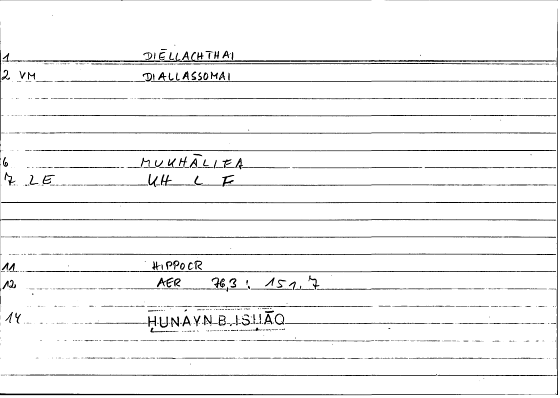 1 DIĒLLACHTHAI
2 VM DIALLASSOMAI
6 MUKHĀLIFA
7 LE KH L F
11 HIPPOCR
12 AER 76,3 : 151,7
14 ḤUNAYN B. ISḤĀQ